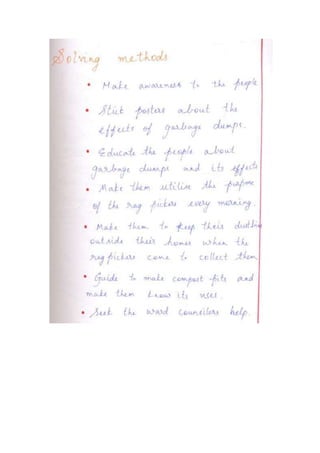 Solving methods
• Make awareness to the people
• Stick posters about the
effects of garbage dumps.
• Educate the people about
garbage dumps and its effects
• Make them utilise the purpose
of the rag pickers every morning.
• Make them to keep their dustbins
outside their homes when the
ragpickers come to collect them
• Guide to make compost pits and
make them know its uses.
• Seek the ward councilors help.